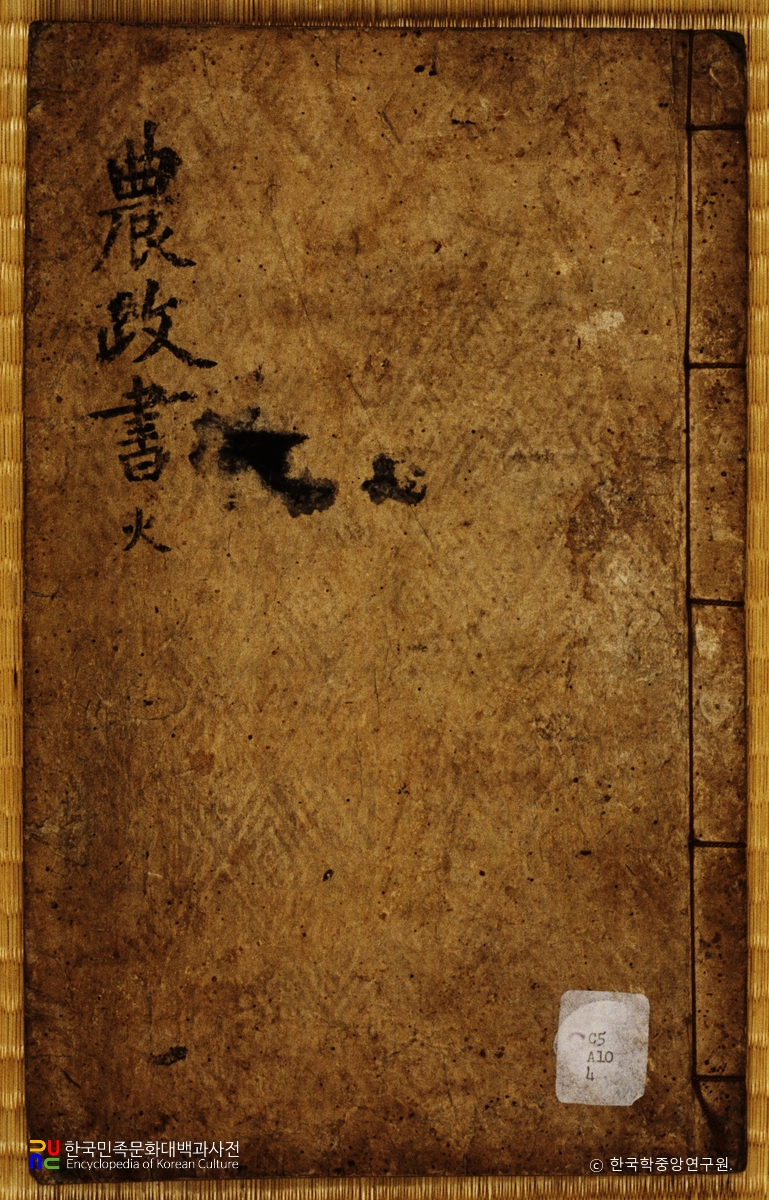 農政書 火
C5
A10
4
한국민족문화대백과사전
Encyclopedia of Korean Culture
© 한국학중앙연구원.